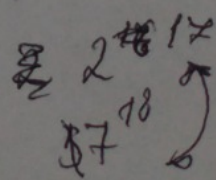 2 17
$7 18